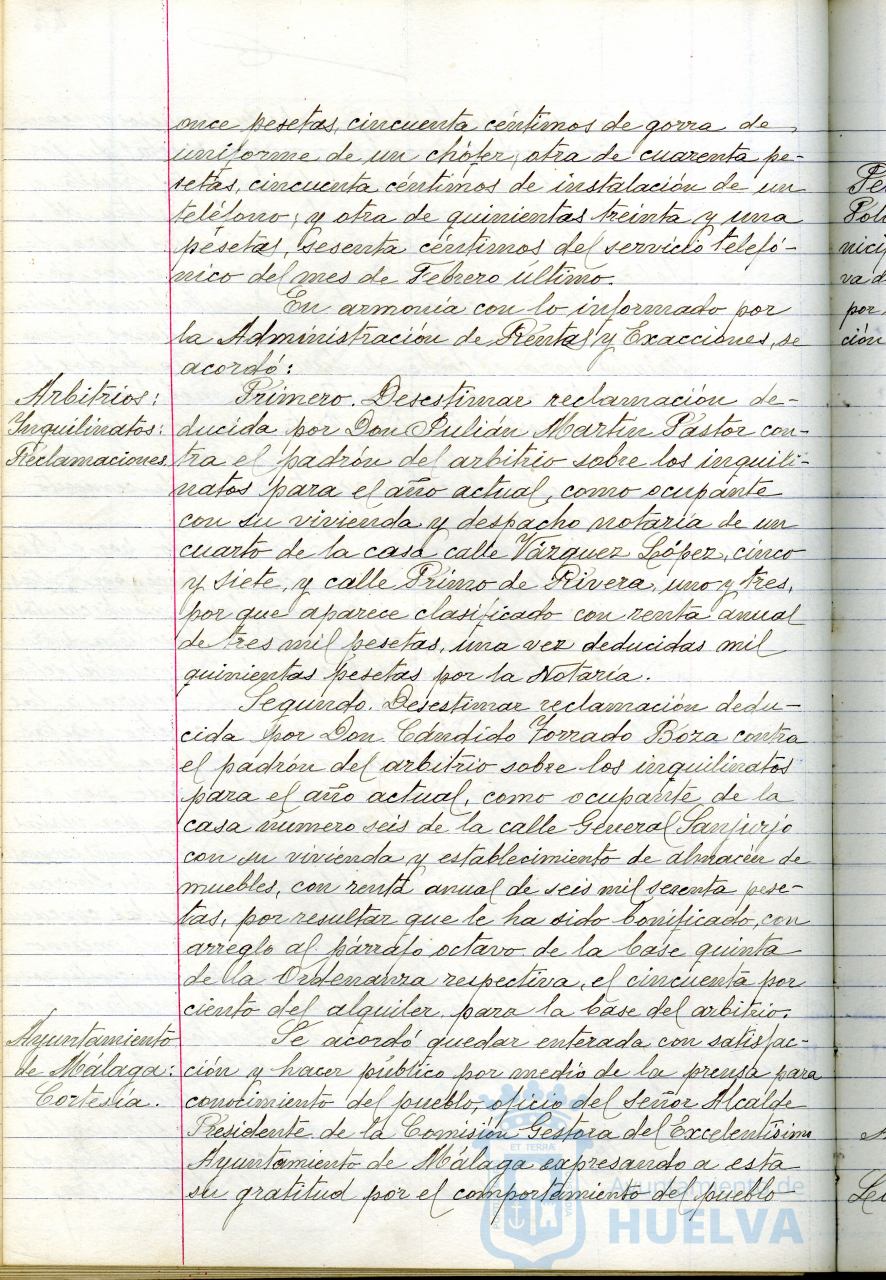 once pesetas, cincuenta céntimos de gorra de
uniforme de un chófer; otra de cuarenta pe-
setas, cincuenta céntimos de instalación de un
teléfono; y otra de quinientas treinta y una
pesetas, sesenta céntimos del servicio telefó-
nico del mes de Febrero ultimo.
En armonía con lo informado por
la Administración de Rentas y Exacciones, se
acordó:
Arbitrios:
Inquilinatos:
Reclamaciones.
Primero. Desestimar reclamación de-
ducida por Don Julián Martín Pastor con-
tra el padrón del arbitrio sobre los inquili-
natos para el año actual, como ocupante
con su vivienda y despacho notaría de un
cuarto de la casa calle Vázquez López, cinco
y siete, y calle Primo de Rivera, uno y tres,
por que aparece clasificado con renta anual
de tres mil pesetas, una vez deducidas mil
quinientas pesetas por la Notaría.
Segundo. Desestimar reclamación dedu-
cida por Don Cándido Torrado Boza contra
el padrón del arbitrio sobre los inquilinatos
para el año actual, como ocupante de la
casa número seis de la calle General Sanjurjo
con su vivienda y establecimiento de almacén de
muebles, con renta anual de seis mil sesenta pese-
tas, por resultar que le ha sido bonificado, con
arreglo al párrafo octavo de la base quinta
de la Ordenanza respectiva, el cincuenta por
ciento del alquiler para la base del arbitrio.
Ayuntamiento
de Málaga:
Cortesía.
Se acordó quedar enterada con satisfac-
ción y hacer público por medio de la prensa para
conocimiento del pueblo, oficio del señor Alcalde
Presidente de la Comisión Gestora del Excelentísimo
Ayuntamiento de Málaga expresando a esta
su gratitud por el comportamiento del pueblo
Pe
Polı
nici
va d
por
ción
Le
ET TERRA
Ayuntamiento de
HUELVA